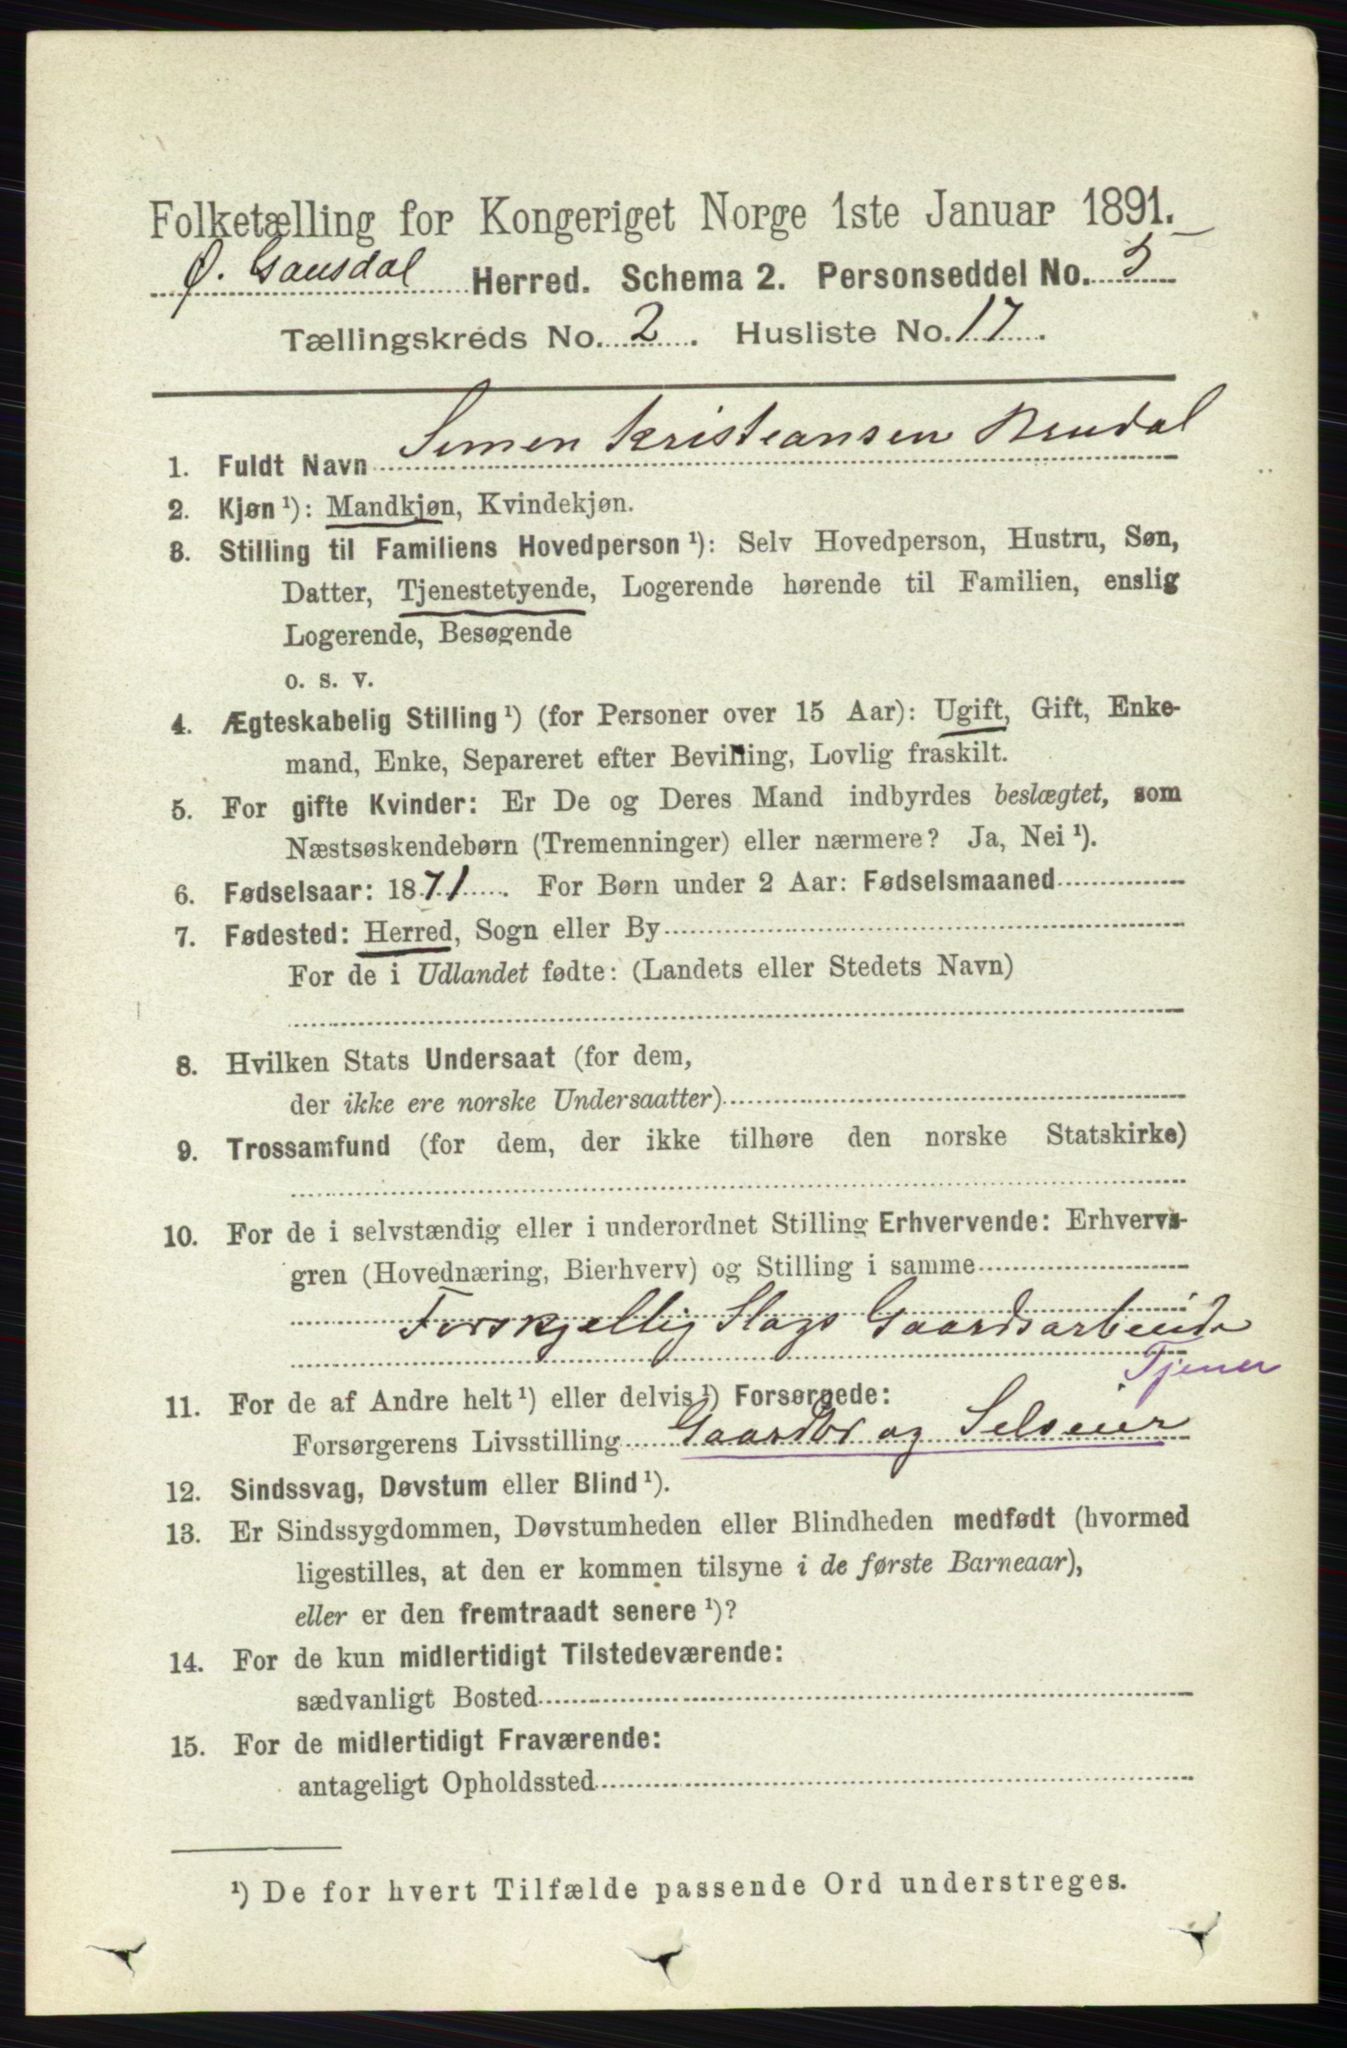 Folketælling for Kongeriget Norge 1ste Januar 1891.
Ø. Gausdal Herred. Schema 2. Personseddel No. 5
Tællingskreds No. 2. Husliste No. 17.
1. Fuldt Navn Simen Kristiansen
2. Kjøn ¹): Mandkjøn, Kvindekjøn.
3. Stilling til Familiens Hovedperson ¹): Selv Hovedperson, Hustru, Søn,
Datter, Tjenestetyende, Logerende hørende til Familien, enslig
Logerende, Besøgende
o. s. v.
4. Ægteskabelig Stilling ¹) (for Personer over 15 Aar): Ugift, Gift, Enke-
mand, Enke, Separeret efter Bevilling, Lovlig fraskilt.
5. For gifte Kvinder: Er De og Deres Mand indbyrdes beslægtet, som
Næstsøskendebørn (Tremenninger) eller nærmere? Ja, Nei ¹).
6. Fødselsaar: 1871. For Børn under 2 Aar: Fødselsmaaned
7. Fødested: Herred, Sogn eller By
For de i Udlandet fødte: (Landets eller Stedets Navn)
8. Hvilken Stats Undersaat (for dem,
der ikke ere norske Undersaatter)
9. Trossamfund (for dem, der ikke tilhøre den norske Statskirke)
10. For de i selvstændig eller i underordnet Stilling Erhvervende: Erhvervs-
gren (Hovednæring, Bierhverv) og Stilling i samme
Forskjellig Slags Gaardsarbeide
Tjener
11. For de af Andre helt ¹) eller delvis ¹) Forsørgede:
Forsørgerens Livsstilling Gaardbr og Selveier
12. Sindssvag, Døvstum eller Blind ¹).
13. Er Sindssygdommen, Døvstumheden eller Blindheden medfødt (hvormed
ligestilles, at den er kommen tilsyne i de første Barneaar),
eller er den fremtraadt senere ¹)?
14. For de kun midlertidigt Tilstedeværende:
sædvanligt Bosted
15. For de midlertidigt Fraværende:
antageligt Opholdssted
¹) De for hvert Tilfælde passende Ord understreges.